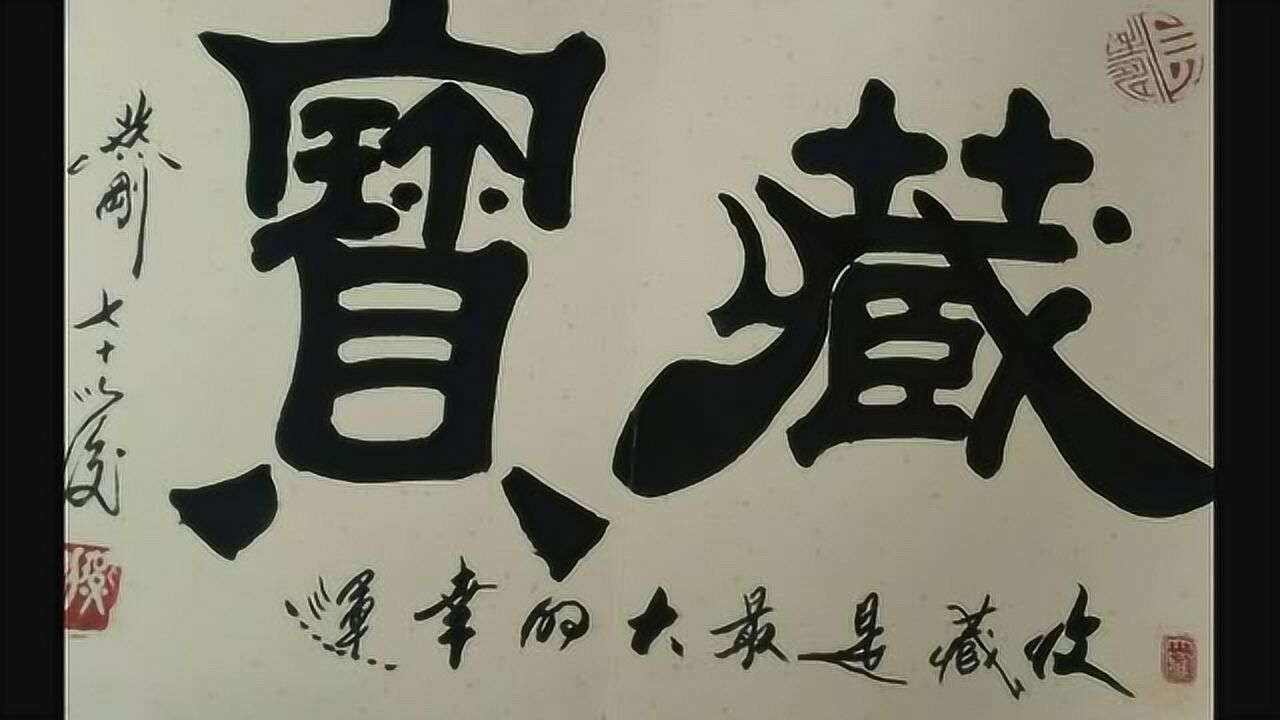 藏寶
收藏是最大的幸運
燕剛七十以後